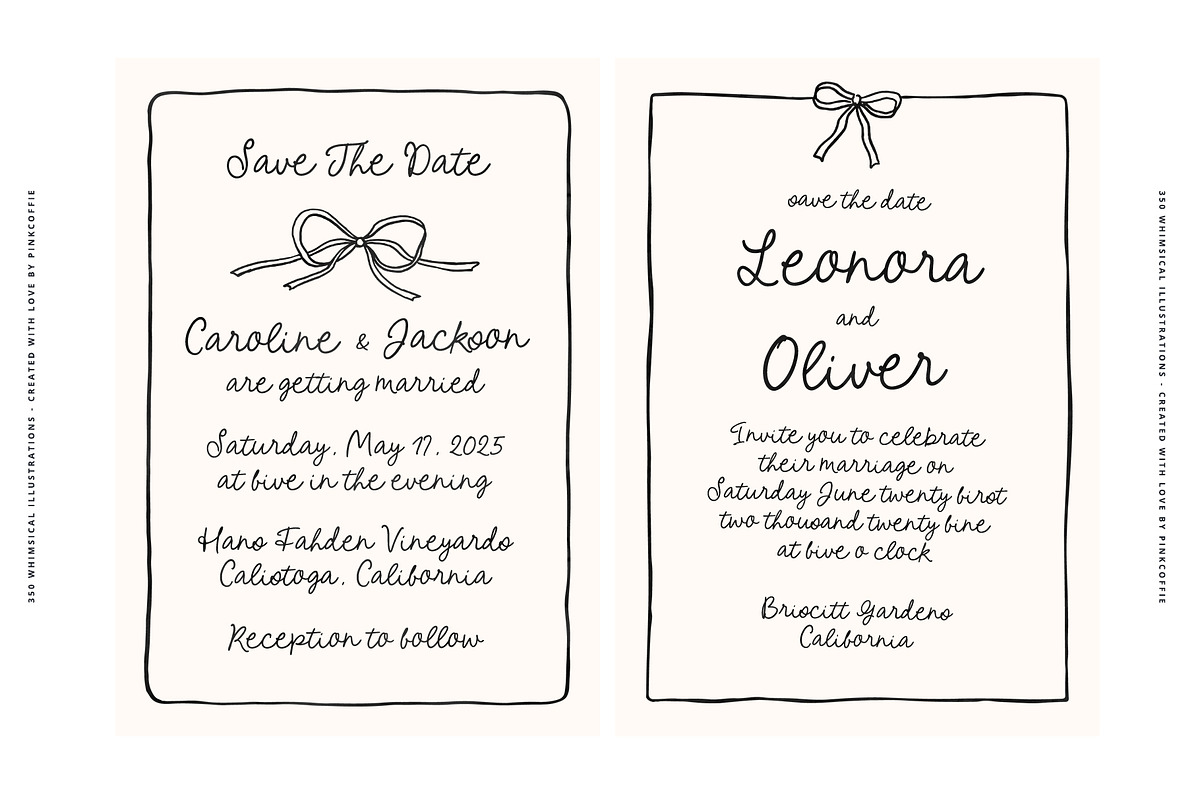 350 WHIMSICAL ILLUSTRATIONS - CREATED WITH LOVE BY PINKCOFFIE
Save The Date
Caroline & Jackson
are getting married
Saturday, May 17, 2025
at five in the evening
Hans Fahden Vineyards
Calistoga, California
Reception to follow
save the date
Leonora
and
Oliver
Invite you to celebrate
their marriage on
Saturday June twenty first
two thousand twenty fine
at five o clock
Briscitt Gardens
California
350 WHIMSICAL ILLUSTRATIONS - CREATED WITH LOVE BY PINKCOFFIE